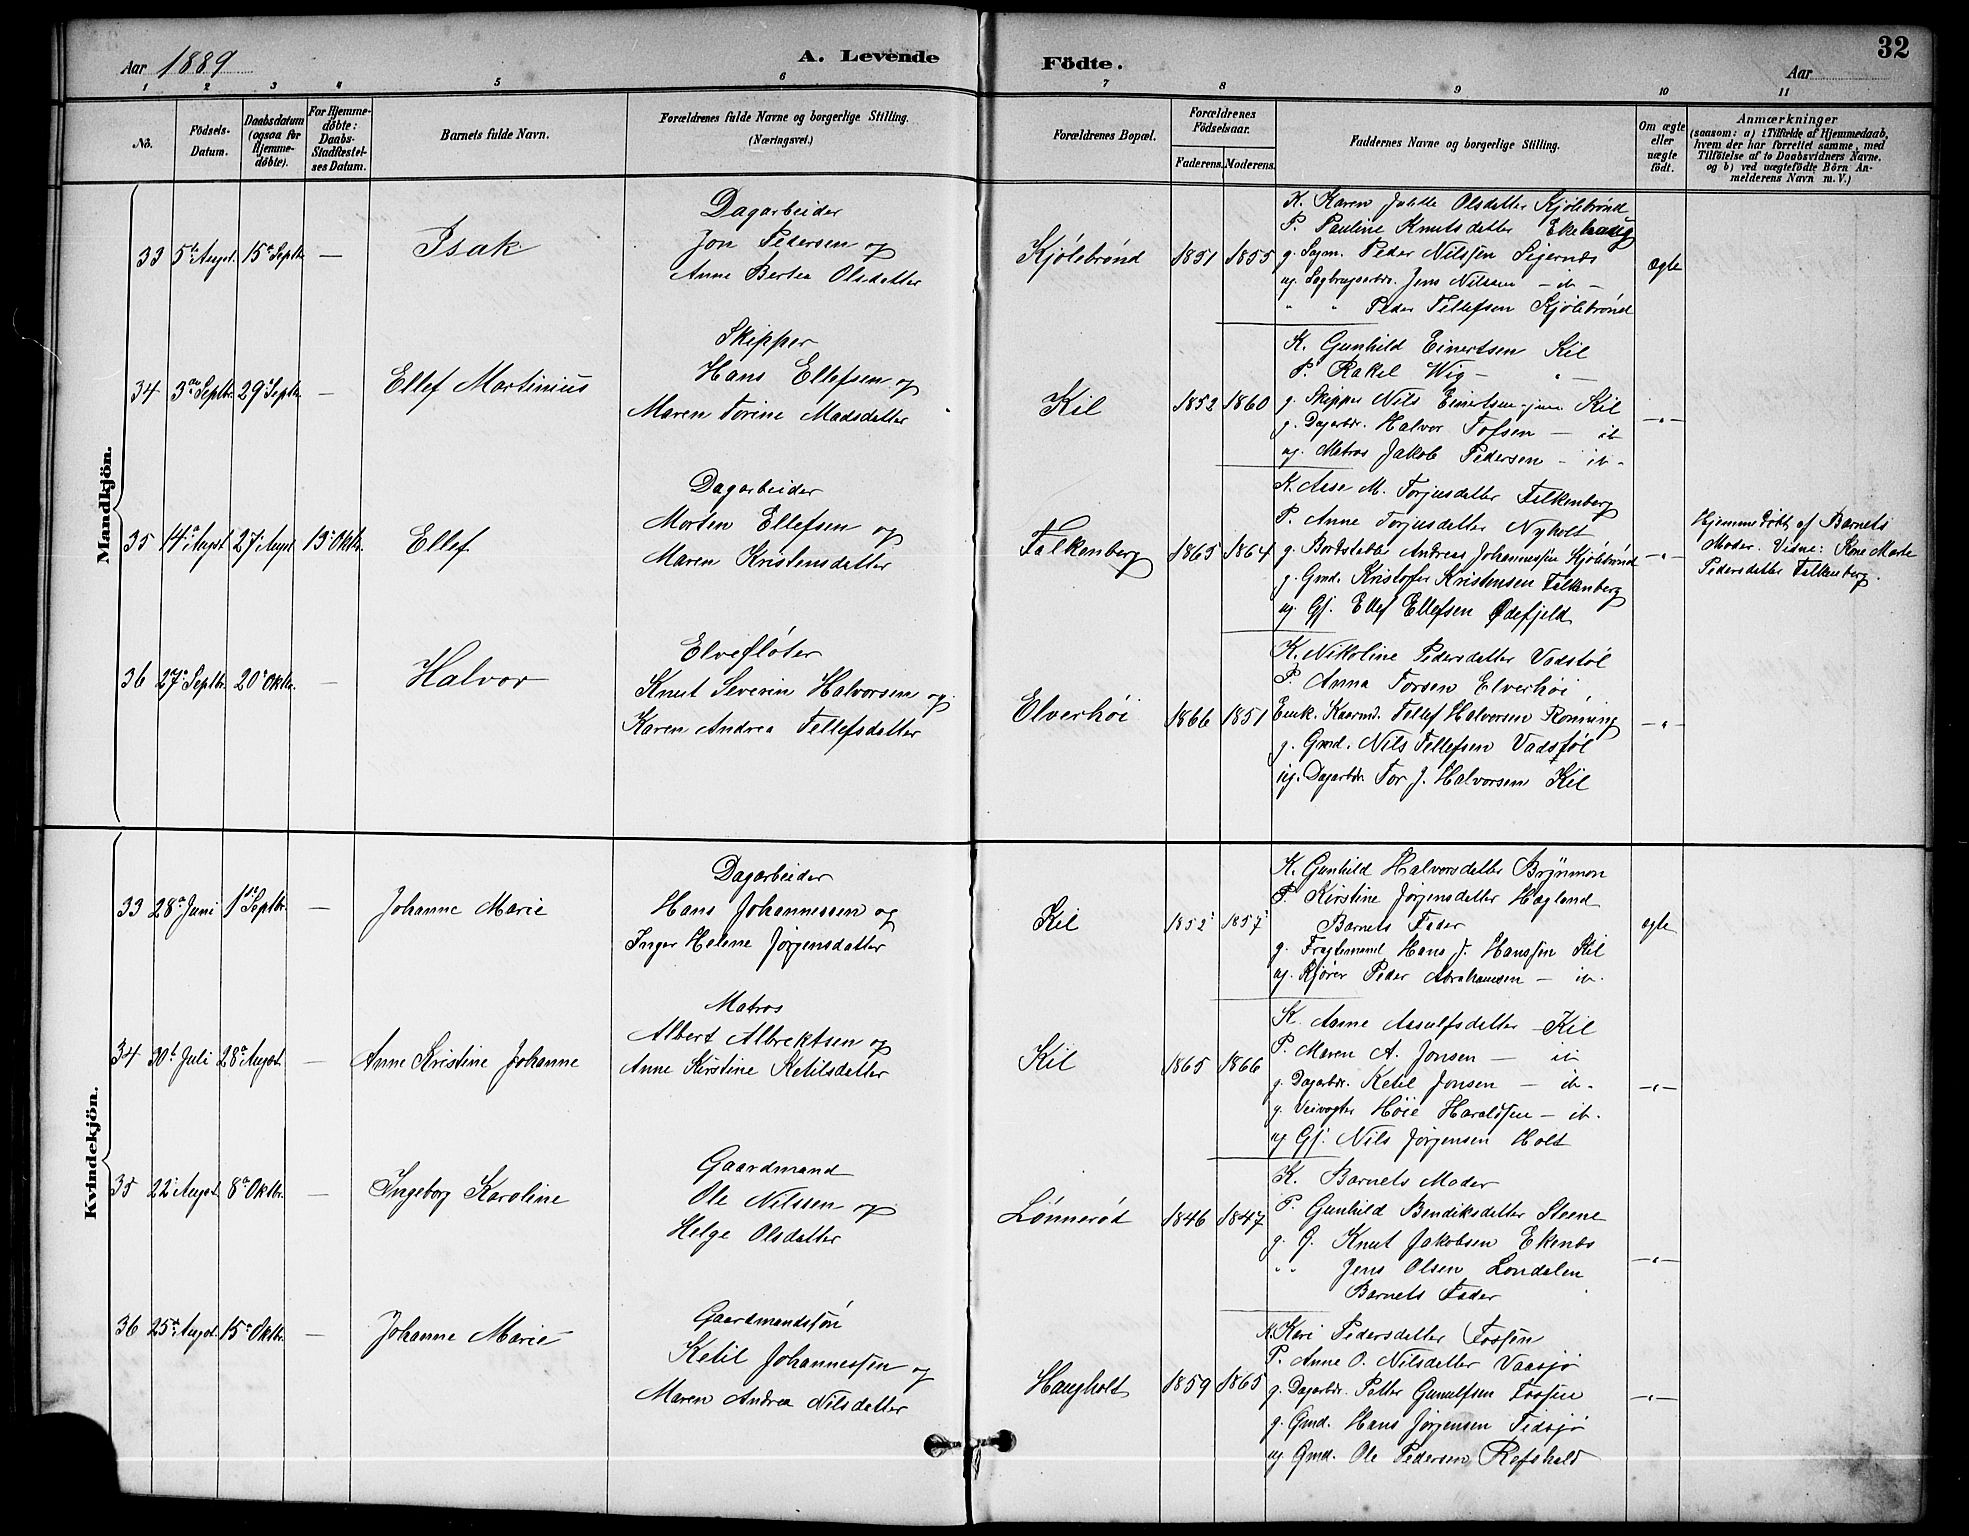 Aar 1889
A. Levende Födte.
32
Aar
1 2 3 4 5 6 7 8 9 10 11
No.
Födsels-Datum.
Daabsdatum (ogsaa for Hjemme-døbte).
For Hjemme-døbte: Daabs-Stadfæstel-ses Datum.
Barnets fulde Navn.
Forældrenes fulde Navne og borgerlige Stilling.
(Næringsvei.)
Forældrenes Bopæl.
Forældrenes Födselsaar.
Faderens. Moderens.
Faddernes Navne og borgerlige Stilling.
Om ægte eller uægte födt.
Anmærkninger
(saasom: a) i Tilfælde af Hjemmedaab,
hvem der har forrettet samme, med
Tilföielse af to Daabsvidners Navne,
og b) ved uægtefödte Börn An-
melderens Navn m. V.)
Mandkjön.
33 5te August. 15de Septbr. —
Isak
Dagarbeider
Jon Pedersen og
Anne Bertea Olsdatter
Kjölebrönd 1851 1855
K. Karen Olsdatter Kjölebrönd
P. Pauline Knutsdatter Ekehaug
g. Sagm. Peder Nilssen Sejernæs
ug. Jens Nilsen — ib —
" " Peder Tellefsen Kjölebrönd
ægte
34 3die Septbr. 29de Septbr. —
Ellef Martinius
Skipper
Hans Ellefsen og
Maren Torine Madsdatter
Kil 1852 1860
K. Gunhild Einertsen Kil
P. Rakel Wig — " —
g. Skipper Nils Einertsen jun. Kil
g. Dagarbr. Halvor Tofsen — ib
ug. Matros Jakob Pedersen — ib —
— " —
35 14de August 27de August 13de Oktbr.
Ellef
Dagarbeider
Morten Ellefsen og
Maren Kristensdatter
Falkenberg 1865 1864
K. Aase M. Torjusdatter Falkenberg
P. Anne Torjusdatter Nyholt
g. Andreas Johannessen Kjölebrönd
g. Gmd. Kristofer Kristensen Falkenberg
ug. Gj. Ellef Ellefsen Ødefjeld
— " —
Hjemmedöbt af Barnets
Moder. Vidne: Kone Marte
Pedersdatter Falkenberg.
36 27de Septbr. 20de Oktbr. —
Halvor
Elveflöter
Knut Severin Halvorsen og
Karen Andrea Tellefsdatter
Elverhöi 1866 1851
K. Nikoline Pedersdatter Vadstöl
P. Anna Torsen Elverhöi
Enk. Kaarmd. Tellef Halvorsen Rönning
g. Gmd. Nils Tellefsen Vadstöl
ug. Dagarbr. Tor J. Halvorsen Kil
— " —
Kvindekjön.
33 28de Juni 1ste Septbr. —
Johanne Marie
Dagarbeider
Hans Johannessen og
Inger Helene Jörgensdatter
Kil 1852 1857
K. Gunhild Halvorsdatter Brynmon
P. Kirstine Jörgensdatter Hagland
Barnets Fader
g. Hans J. Hanssen Kil
ug. Kjörer Peder Abrahamsen — ib.
ægte
34 30te Juli 28de August. —
Anne Kristine Johanne
Matros
Albert Albrektsen og
Anne Kirstine Ketilsdatter
Kil 1865 1866
K. Anne Aasulfsdatter Kil
P. Maren A. Jonsen — ib
g. Dagarbr. Ketil Jonsen — ib.
g. Veivogter Höie Haraldsen — ib.
ug Gj. Nils Jörgensen Holt
— " —
35 22de August. 8de Oktbr. —
Ingeborg Karoline
Gaardmand
Ole Nilssen og
Helge Olsdatter
Lönneröd 1846 1847
K. Barnets Moder
P. Gunhild Bendiksdatter Steene
g. G. Knut Jakobsen Ekenæs
" " Jens Olsen Londalen
Barnets Fader
— " —
36 25de August. 15de Oktbr. —
Johanne Marie
Gaardmandssön
Ketil Johannessen og
Maren Andrea Nilsdatter
Haugholt 1859 1865
K. Kari Pedersdatter Fossen
P. Anne O. Nilsdatter Vaasjö
g. Dagarbr. Petter Gunulfsen Fossen
g. Gmd. Hans Jörgensen Tidsjö
ug Gmd. Ole Pedersen Refshald
— " —